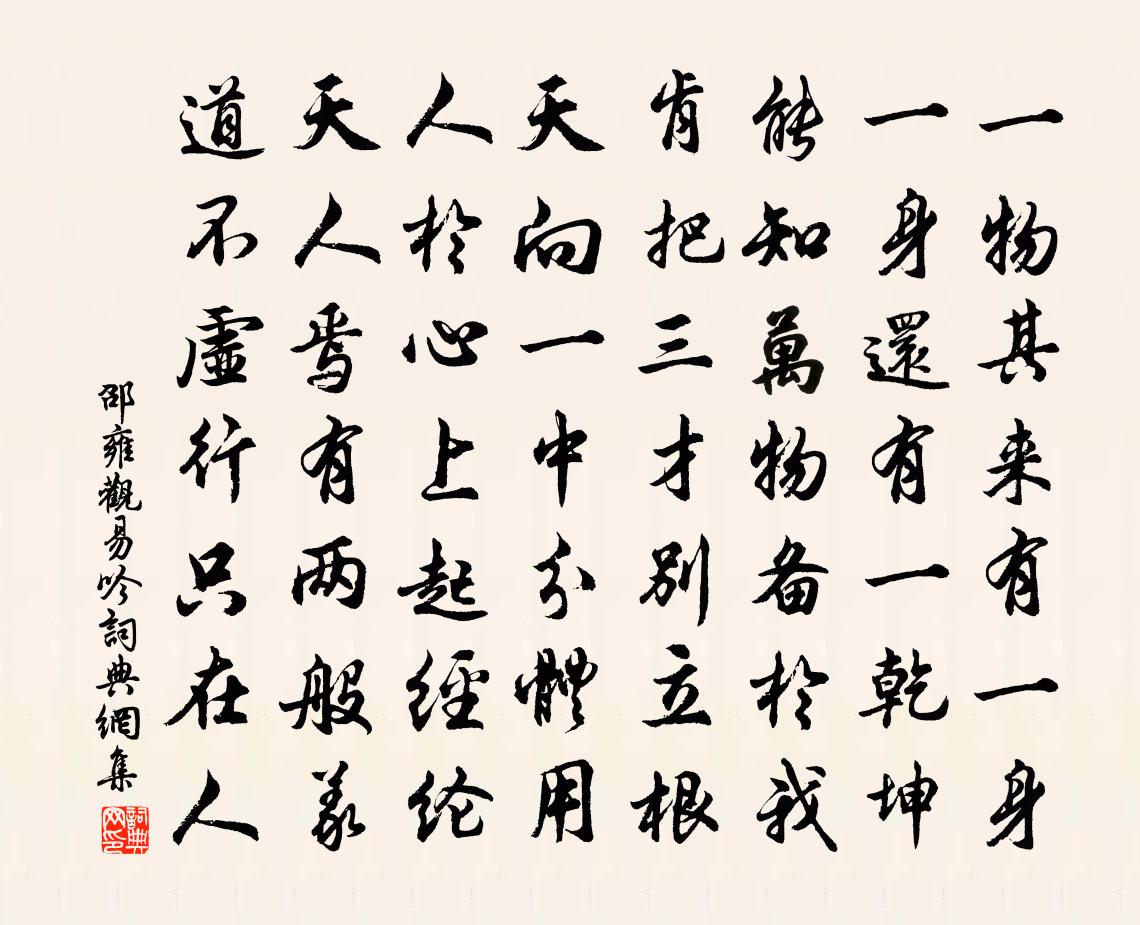 一物其来有一身
一身還有一乾坤
能知萬物备於我
肯把三才別立根
天向一中分體用
人於心上起經纶
天人焉有两般義
道不虛行只在人
邵雍觀易吟詞典網集
詞典网印